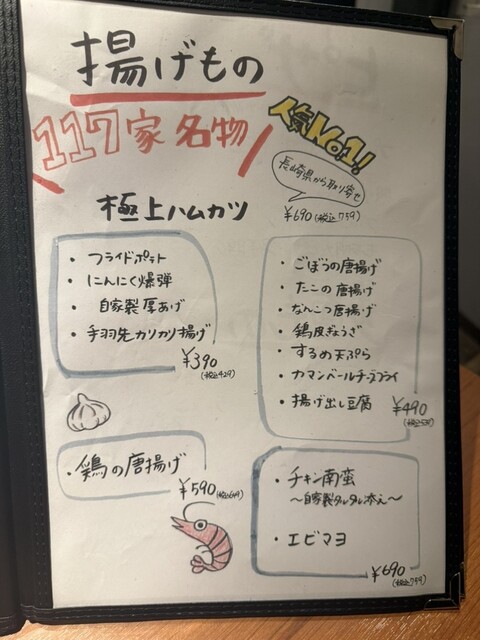 揚げもの
117家名物
人気No.1!
長崎県から取り寄せ
極上ハムカツ
¥690(税込759)
・フライドポテト
・にんにく爆弾
・自家製厚あげ
・手羽先カリカリ揚げ
¥390
(税込429)
・ごぼうの唐揚げ
・たこの唐揚げ
・なんこつ唐揚げ
・鶏皮ぎょうざ
・するめ天ぷら
・カマンベールチーズフライ
・揚げ出し豆腐
¥490
(税込539)
・鶏の唐揚げ
¥590(税込649)
・チキン南蛮
〜自家製タルタル添え〜
・エビマヨ
¥690
(税込759)